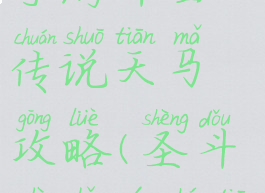 chuán shuō tiān mǎ
传说天马
gōng lüè shèng dǒu
攻略(圣斗